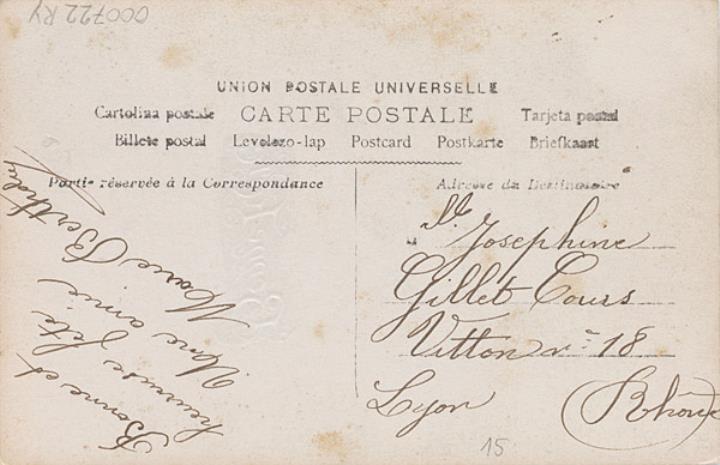 000722 RY
UNION POSTALE UNIVERSELLE
Cartolina postale CARTE POSTALE Tarjeta postal
Billete postal Levelezo-lap Postcard Postkarte Briefkaart
Partie réservée à la Correspondance
Adresse du Destinataire
Bonne et
heureuse fête
Une amie
Marie Berthe
Mlle Josephine
Gillet Cours
Vitton n° 18
Lyon (Rhône)
15